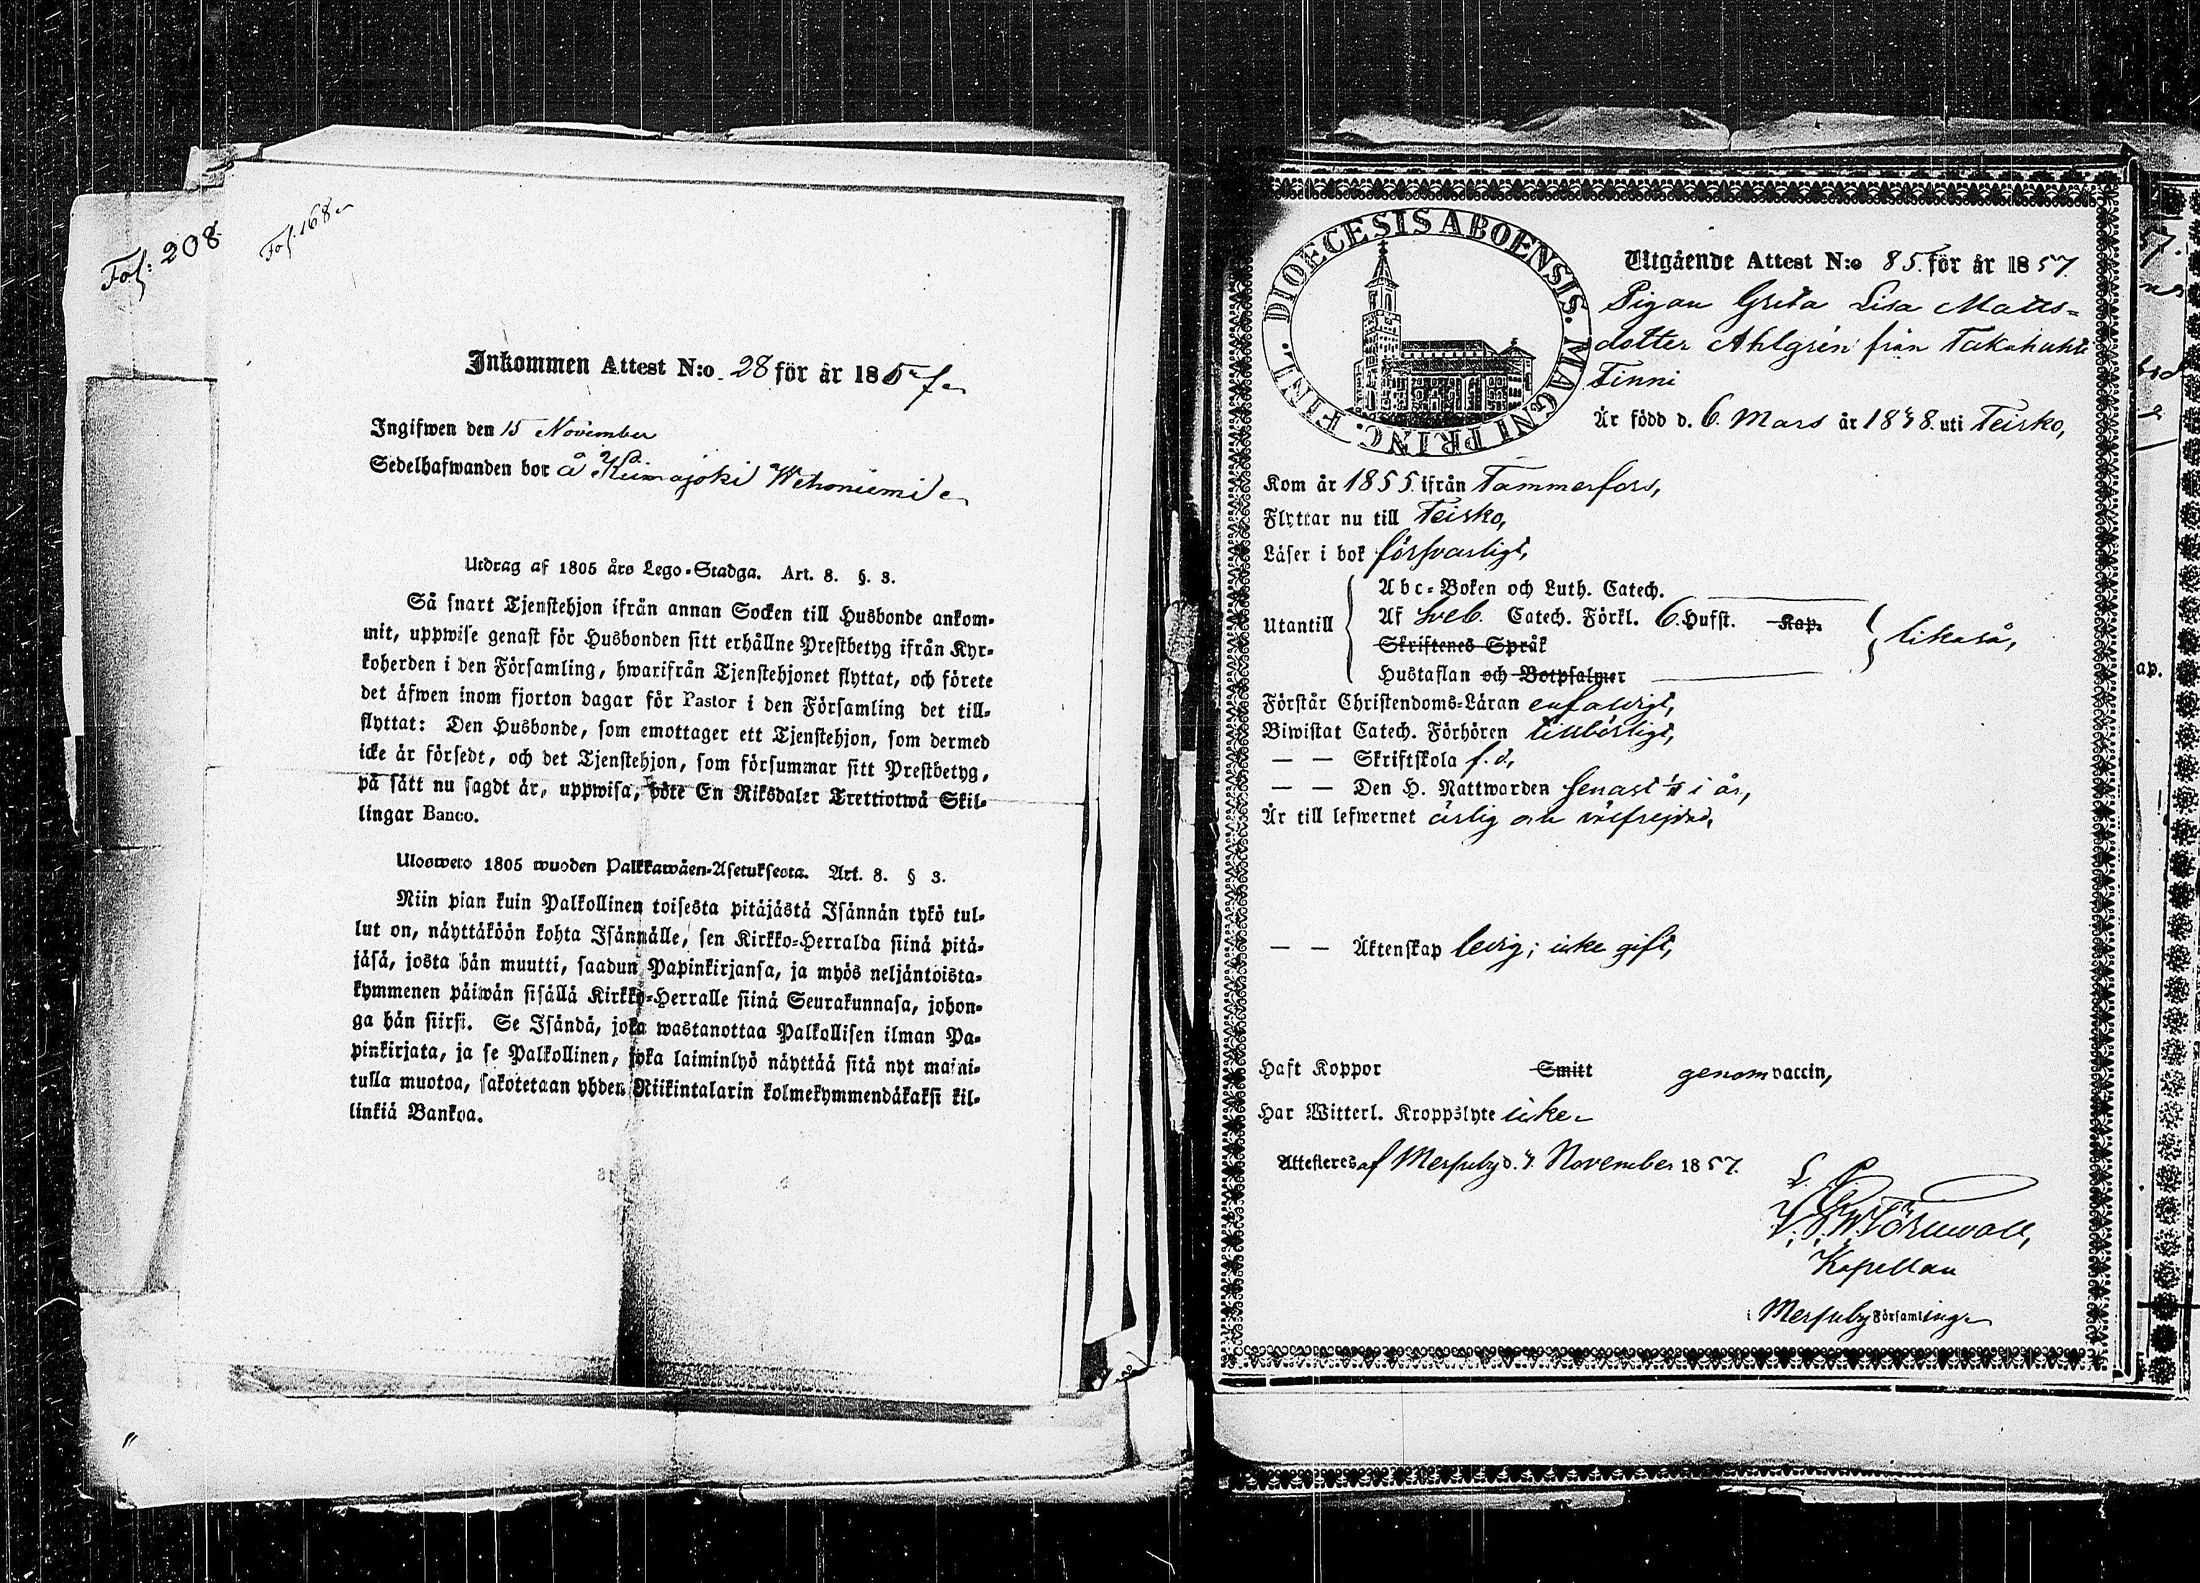 Fol: 208
Fol. 168
Inkommen Attest N:o 28 för år 1857
Ingifwen den 15 November
Sedelhafwanden bor å Kiimajoki Wehoniemi
Utdrag af 1805 års Lego-Stadga. Art. 8. §. 3.
Så snart Tjenstehjon ifrån annan Socken till Husbonde ankom-
mit, uppwise genast för Husbonden sitt erhållne Prestbetyg ifrån Kyr-
koherden i den Församling, hwarifrån Tjenstehjonet flyttat, och förete
det äfwen inom fjorton dagar för Pastor i den Församling det till-
flyttat: Den Husbonde, som emottager ett Tjenstehjon, som dermed
icke är försedt, och det Tjenstehjon, som försummar sitt Prestbetyg,
på sätt nu sagdt är, uppwisa, böte En Riksdaler Trettiotwå Skil-
lingar Banco.
Ulosweto 1805 wuoden Palkkawäen-Asetuksesta. Art. 8. § 3.
Niin pian kuin Palkollinen toisesta pitäjästä Isännän tykö tul-
lut on, näyttäköön kohta Isännälle, sen Kirkko-Herralda siinä pitä-
jäsä, josta hän muutti, saadun Papinkirjansa, ja myös neljäntoista-
kymmenen päiwän sisällä Kirkko-Herralle siinä Seurakunnasa, johon-
ga hän siirsi. Se Isändä, joka wastanottaa Palkollisen ilman Pa-
pinkirjata, ja se Palkollinen, joka laiminlyö näyttää sitä nyt maini-
tulla muotoa, sakotetaan yhden Riikintalarin kolmekymmendäkaksi kil-
linkiä Bankoa.
DIOECESIS ABOENSIS. MAGNI PRINC. FINL.
Utgående Attest N:o 85. för år 1857
Pigan Greta Lisa Matts-
dotter Ahlgrén från Takahuhti
Finni
Är född d. 6. Mars år 1838. uti Teisko,
Kom år 1855. ifrån Tammerfors,
Flyttar nu till Teisko,
Läser i bok försvarligt,
Abc-Boken och Luth. Catech.
Utantill Af Sveb. Catech. Förkl. 6. Hufst. Kap. likaså,
Skriftenes Språk
Hustaflan och Botpsalmer
Förstår Christendoms-Läran enfaldigt,
Biwistat Catech. Förhören tillbörligt,
— — Skriftskola f. d,
— — Den H. Nattwarden senast i år,
Är till lefwernet ärlig och välfrejdad,
— — Äktenskap ledig; icke gift,
Haft Koppor Smitt genom vaccin,
Har Witterl. Kroppslyte icke
Attesteras af Messuby d. 7. November 1857.
L. P.
Törnwall,
Kapellan
i Messuby Församling
ap.